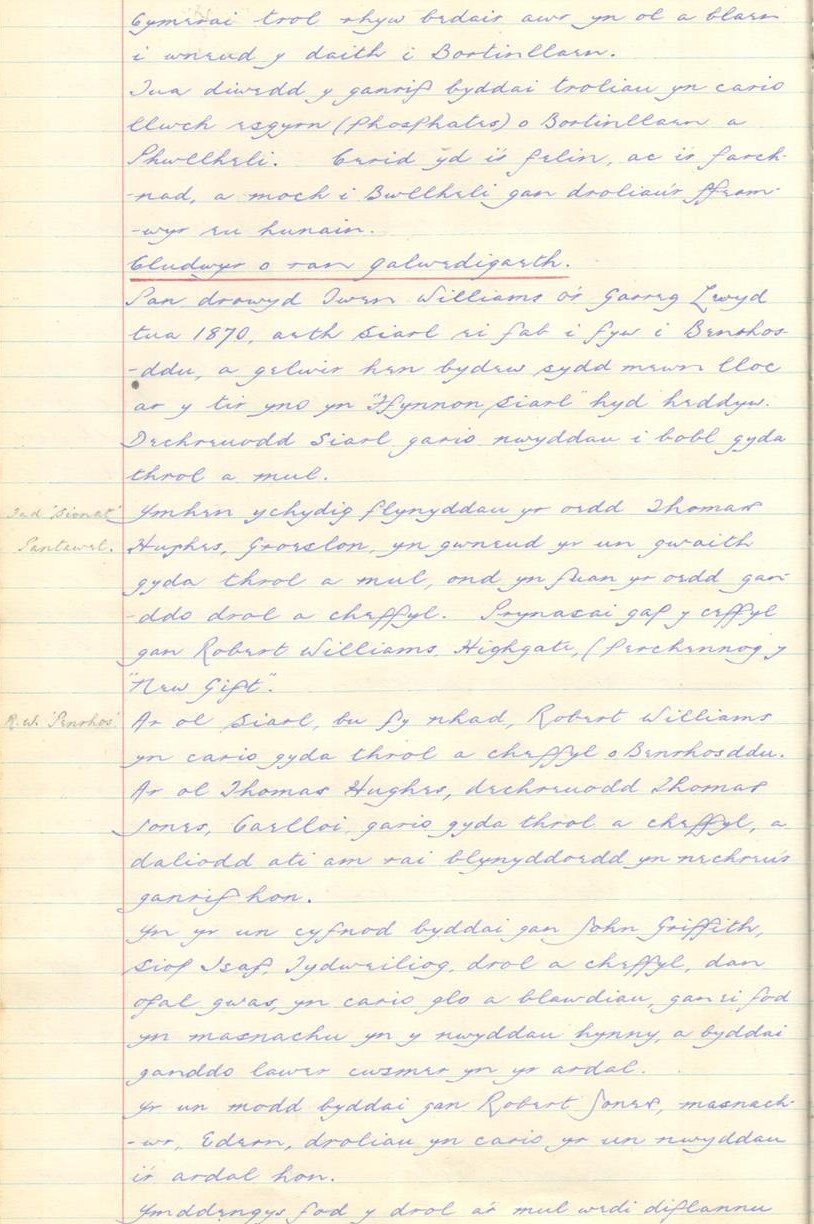 Cymerai trol rhyw bedair awr yn ol a blaen
i wneud y daith i Bortinllaen.
Tua diwedd y ganrif byddai troliau yn cario
llwch esgyrn (phosphates) o Bortinllaen a
Phwllheli. Cerid ŷd i'r felin, ac i'r farch-
-nad, a moch i Bwllheli gan droliau'r fferm-
-wyr eu hunain.
Cludwyr o ran galwedigaeth.
Pan drowyd Owen Williams o'r Garreg Lwyd
tua 1870, aeth Siarl ei fab i fyw i Benrhos-
-ddu, a gelwir hen bydew sydd mewn lloc
ar y tir yno yn "Ffynnon Siarl" hyd heddyw.
Dechreuodd Siarl gario nwyddau i bobl gyda
throl a mul.
Tad 'Sionat' Ymhen ychydig flynyddau yr oedd Thomas
Pantawel. Hughes, Groeslon, yn gwneud yr un gwaith
gyda throl a mul, ond yn fuan yr oedd gan-
-ddo drol a cheffyl. Prynasai gaf y ceffyl
gan Robert Williams, Highgate, (perchennog y
"New Gift".
R.W. 'Penrhos' Ar ol Siarl, bu fy nhad, Robert Williams
yn cario gyda throl a cheffyl o Benrhosddu.
Ar ol Thomas Hughes, dechreuodd Thomas
Jones, Caelloi, gario gyda throl a cheffyl, a
daliodd ati am rai blynyddoedd yn nechreu'r
ganrif hon.
Yn yr un cyfnod byddai gan John Griffith,
Siop Isaf, Tydweiliog, drol a cheffyl, dan
ofal gwas, yn cario glo a blawdiau, gan ei fod
yn masnachu yn y nwyddau hynny, a byddai
ganddo lawer cwsmer yn yr ardal.
Yr un modd byddai gan Robert Jones, masnach-
-wr, Edern, droliau yn cario yr un nwyddau
i'r ardal hon.
Ymddengys fod y drol a'r mul wedi diflannu